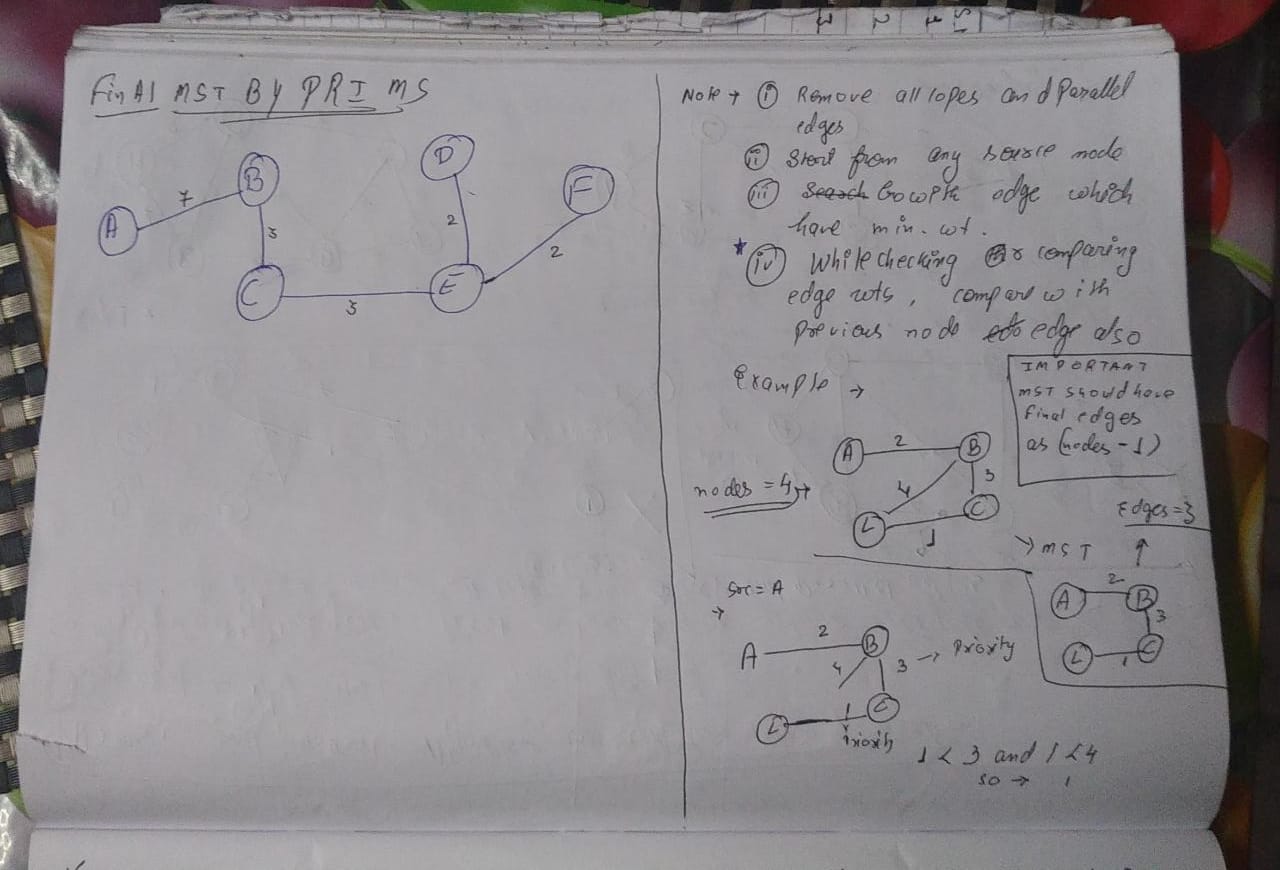 FinAl MST BY PRIMS
A
7
B
3
C
3
E
2
D
2
F
Note → (i) Remove all lopes and Parallel
edges
(ii) Start from any source node
(iii) Search Go with edge which
have min. wt.
* (iv) While checking or comparing
edge wts, compare with
previous node edge also
Example →
IMPORTANT
MST should have
final edges
as (nodes - 1)
nodes = 4 →
A 2 B
4 3
L 1 C
Edges = 3
→ MST ↑
A 2 B
3
L 1 C
src = A
→
A 2 B
4 3 → Priority
L 1 C
Priority
1 < 3 and 1 < 4
so → 1